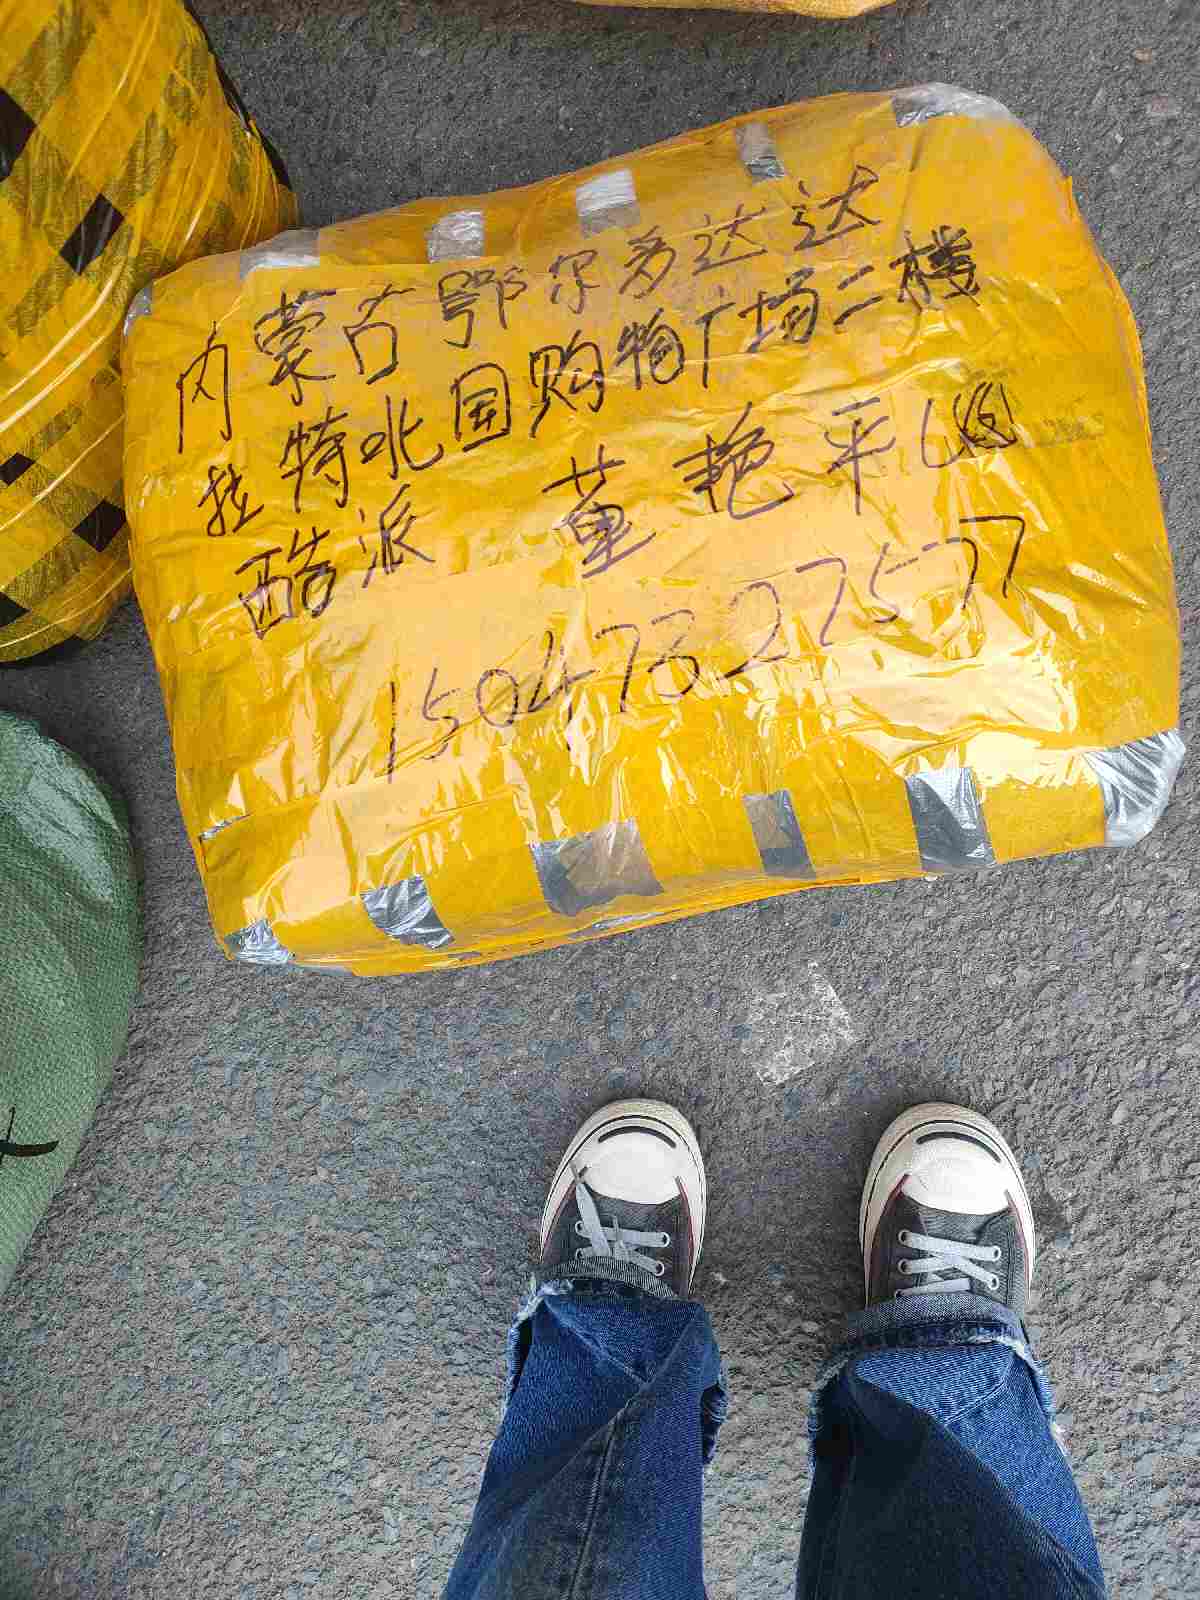 内蒙古鄂尔多达达
拉特北国购物广场二楼
酷派 董艳平
15047327577